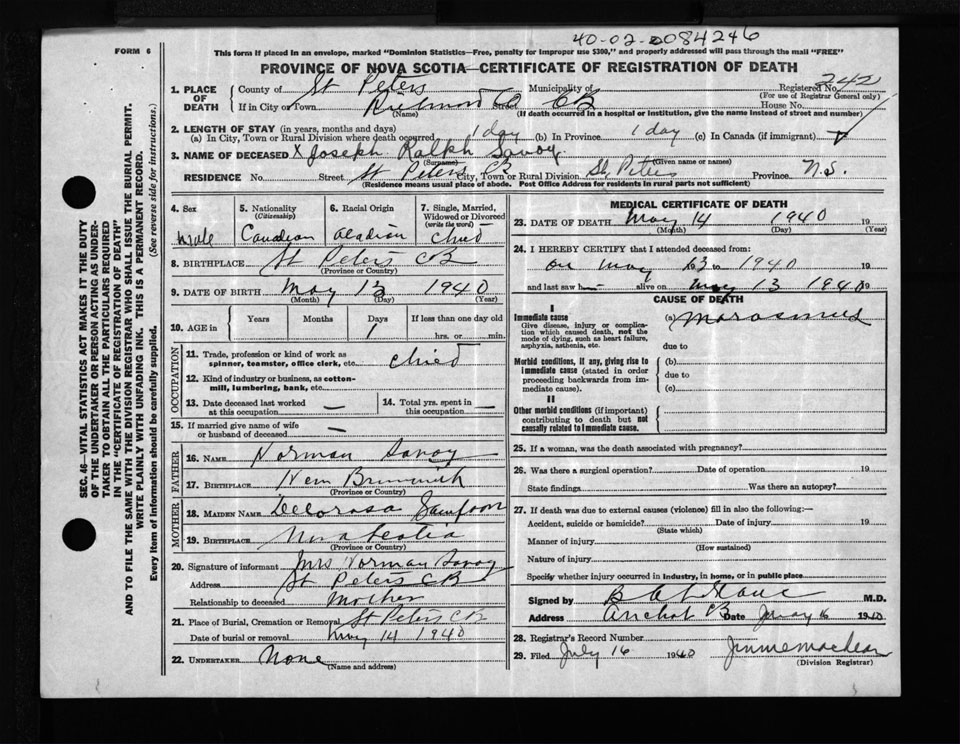 40-02-0084246
FORM 6
This form if placed in an envelope, marked "Dominion Statistics—Free, penalty for improper use $300," and properly addressed will pass through the mail "FREE"
PROVINCE OF NOVA SCOTIA—CERTIFICATE OF REGISTRATION OF DEATH
1. PLACE OF DEATH
County of St Peters Municipality of Registered No. 242
(For use of Registrar General only)
If in City or Town Richmond Co Street CB House No.
(Name) (If death occurred in a hospital or institution, give name instead of street and number)
2. LENGTH OF STAY (in years, months and days)
(a) In City, Town or Rural Division where death occurred 1 day (b) In Province 1 day (c) In Canada (if immigrant)
3. NAME OF DECEASED X Joseph Ralph Savoy
(Surname) (Given name or names)
RESIDENCE No. Street St Peters CB City, Town or Rural Division St, Peters Province N.S.
(Residence means usual place of abode. Post Office Address for residents in rural parts not sufficient)
4. Sex
Male
5. Nationality
(Citizenship)
Canadian
6. Racial Origin
Acadian
7. Single, Married, Widowed or Divorced
(write the word)
Child
8. BIRTHPLACE St Peters CB
(Province or Country)
9. DATE OF BIRTH May 13 1940
(Month) (Day) (Year)
10. AGE in
Years Months Days If less than one day old
1 hrs. or min.
OCCUPATION
11. Trade, profession or kind of work as spinner, teamster, office clerk, etc. Child
12. Kind of industry or business, as cotton-mill, lumbering, bank, etc.
13. Date deceased last worked at this occupation —
14. Total yrs. spent in this occupation —
15. If married give name of wife or husband of deceased —
FATHER
16. NAME Norman Savoy
17. BIRTHPLACE New Brunswick
(Province or Country)
MOTHER
18. MAIDEN NAME Delorosa Sampson
19. BIRTHPLACE Nova Scotia
(Province or Country)
20. Signature of informant Mrs Norman Savoy
Address St Peters CB
Relationship to deceased Mother
21. Place of Burial, Cremation or Removal St Peters CB
Date of burial or removal May 14 1940
22. UNDERTAKER None
(Name and address)
MEDICAL CERTIFICATE OF DEATH
23. DATE OF DEATH May 14 1940 19
(Month) (Day) (Year)
24. I HEREBY CERTIFY that I attended deceased from:
on May 13 to 1940 19
and last saw h alive on May 13 1940 19
CAUSE OF DEATH
I
Immediate cause (a) Marasmus
Give disease, injury or complication which caused death, not the mode of dying, such as heart failure, asphyxia, asthenia, etc.
due to
Morbid conditions, if any, giving rise to immediate cause (stated in order proceeding backwards from immediate cause).
(b)
due to
(c)
II
Other morbid conditions (if important) contributing to death but not causally related to immediate cause.
25. If a woman, was the death associated with pregnancy?
26. Was there a surgical operation? Date of operation 19
State findings Was there an autopsy?
27. If death was due to external causes (violence) fill in also the following:—
Accident, suicide or homicide? Date of injury 19
(State which)
Manner of injury
(How sustained)
Nature of injury
Specify whether injury occurred in industry, in home, or in public place
Signed by M.D.
Address Arichat CB Date 16 1940
28. Registrar's Record Number
29. Filed July 16 1940 Jinnie MacLean
(Division Registrar)
SEC. 46—VITAL STATISTICS ACT MAKES IT THE DUTY
OF THE UNDERTAKER OR PERSON ACTING AS UNDER-
TAKER TO OBTAIN ALL THE PARTICULARS REQUIRED
IN THE "CERTIFICATE OF REGISTRATION OF DEATH"
AND TO FILE THE SAME WITH THE DIVISION REGISTRAR WHO SHALL ISSUE THE BURIAL PERMIT.
WRITE PLAINLY WITH UNFADING INK. THIS IS A PERMANENT RECORD.
Every item of information should be carefully supplied. (See reverse side for instructions.)